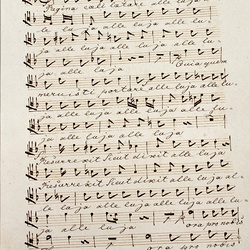 Regina cœli lætare alle luja
le luja alle luja alle lu-
ja alle luja alle luja alle lu-
ja alle luja Quia quem
meruisti portare alle luja alle
luja alle luja alle luja alle lu-
ja alle luja alle luja
Resurrexit Sicut dixit alle luja
Resurrexit Sicut dixit alle luja al-
le luja alle luja alle luja alle lu-
ja alle luja ora pro no-
ora pro nobis